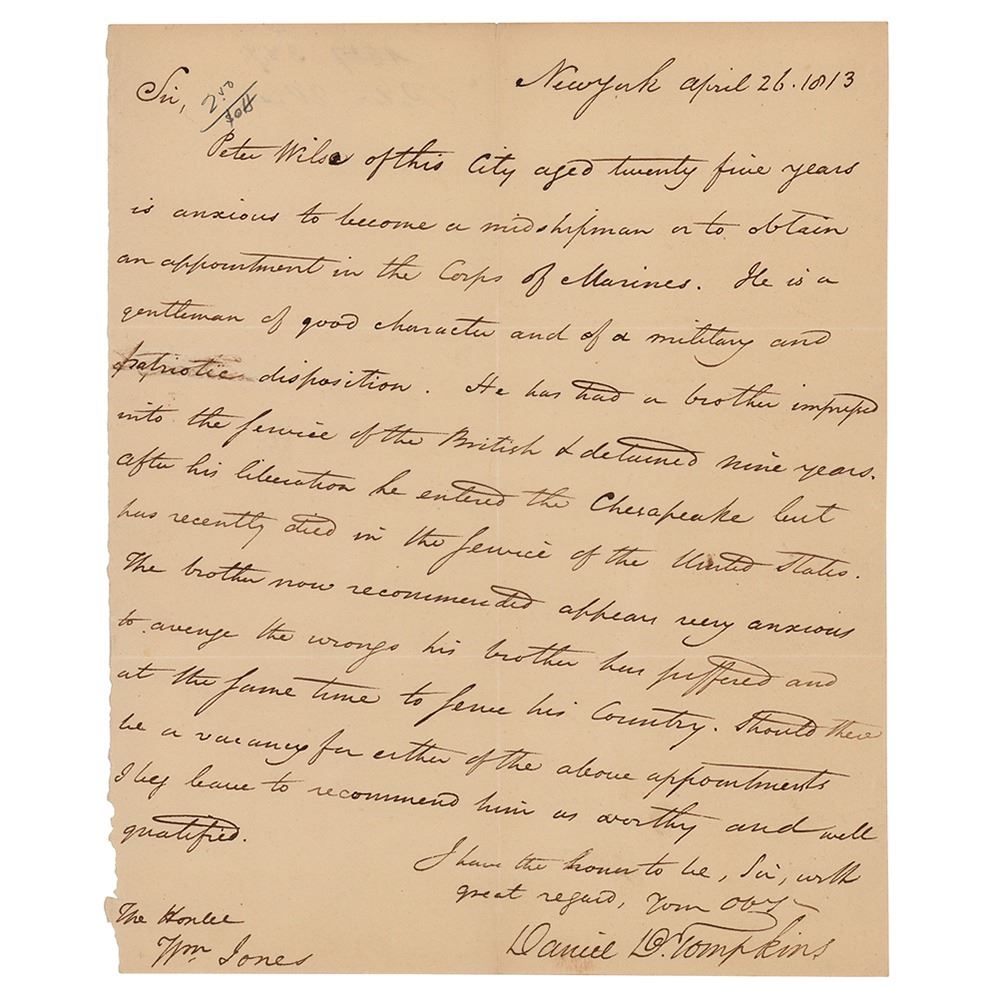 New york april 26. 1813
Sir,
Peter Wilse of this City aged twenty five years
is anxious to become a midshipman or to obtain
an appointment in the Corps of Marines. He is a
gentleman of good character and of a military and
patriotic disposition. He has had a brother impressed
into the service of the British & detained nine years.
after his liberation he entered the Chesapeake but
has recently died in the service of the United States.
The brother now recommended appears very anxious
to avenge the wrongs his brother has suffered and
at the same time to serve his Country. Should there
be a vacancy for either of the above appointments
I beg leave to recommend him as worthy and well
qualified.
I have the honor to be, Sir, with
great regard, your Obt
Daniel D. Tompkins
The Honble
Wm Jones